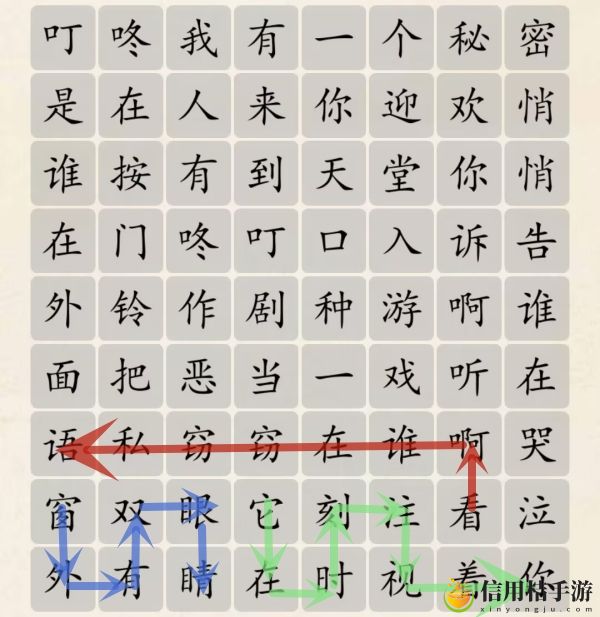 叮咚我有一个秘密
是在人来你迎欢悄
谁按有到天堂你悄
在门咚叮口入诉告
外铃作剧种游啊谁
面把恶当一戏听在
语私窃窃在谁啊哭
窗双眼它刻注看泣
外有睛在时视着你
信用桔手游
xinyongju.com